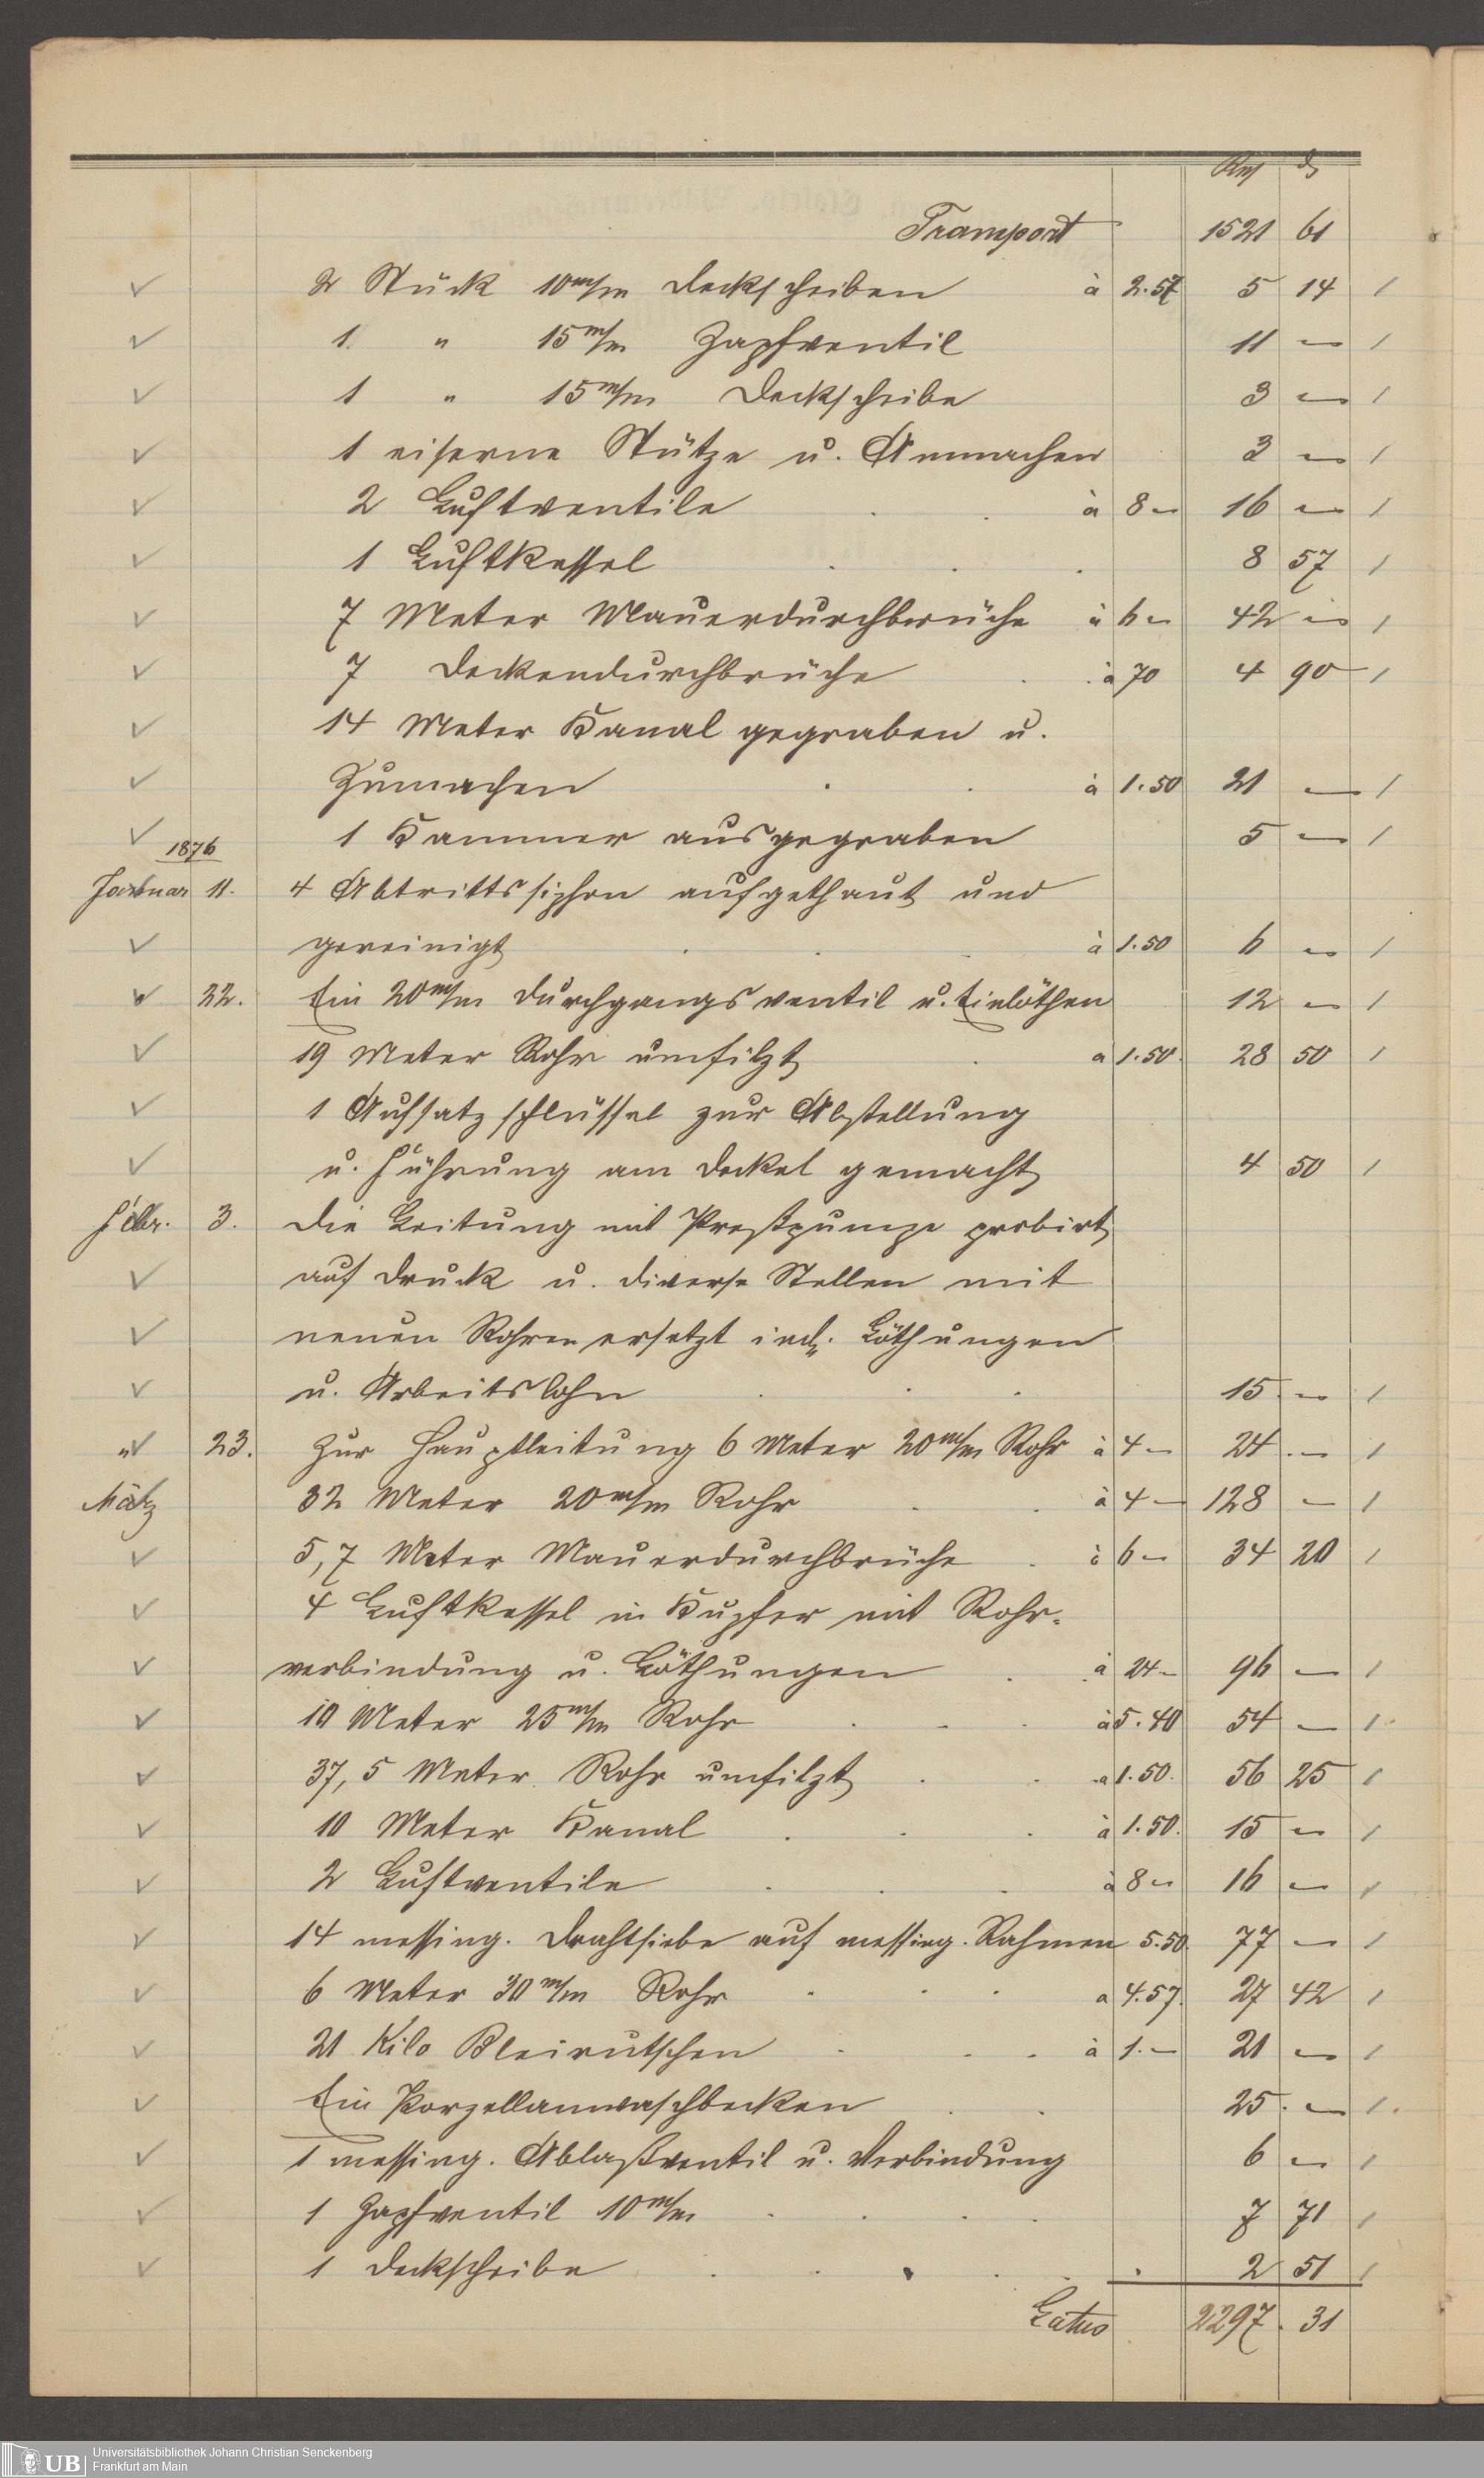 Rm ₰
Transport 1521 61
2 Stück 10 m/m Deckscheiben à 2.57 5 14
1 " 15 m/m Zapfventil 11 —
1 " 15 m/m Deckscheibe 3 —
1 eiserne Stütze u. Anmachen 3 —
2 Luftventile à 8 — 16 —
1 Luftkessel 8 57
7 Meter Mauerdurchbrüche à 6 — 42 —
7 Deckendurchbrüche à 70 4 90
14 Meter Kanal gegraben u.
Zumachen à 1.50 21 —
1 Kammer ausgegraben 5 —
1876
Januar 11. 4 Abtrittssiphon aufgethaut und
gereinigt à 1.50 6 —
" 22. Ein 20 m/m Durchgangsventil u. Einlöthen 12 —
19 Meter Rohr umfilzt a 1.50. 28 50
1 Aufsatzschlüssel zur Abstellung
u. Führung am Deckel gemacht 4 50
Febr. 3. Die Leitung mit Preßpumpe probirt
auf Druck u. diverse Stellen mit
neuen Rohren ersetzt incl. Löthungen
u. Arbeitslohn 15 —
" 23. Zur Hauptleitung 6 Meter 20 m/m Rohr à 4 — 24 —
März 32 Meter 20 m/m Rohr à 4 — 128 —
5,7 Meter Mauerdurchbrüche à 6 — 34 20
4 Luftkessel in Kupfer mit Rohr-
verbindung u. Löthungen à 24 — 96 —
10 Meter 25 m/m Rohr à 5.40 54 —
37,5 Meter Rohr umfilzt a 1.50. 56 25
10 Meter Kanal à 1.50. 15 —
2 Luftventile à 8 — 16 —
14 messing. Drahtsiebe auf messing. Rahmen 5.50 77 —
6 Meter 30 m/m Rohr a 4.57. 27 42
21 Kilo Bleirutschen à 1. — 21 —
Ein Porzellanwaschbecken 25. —
1 messing. Ablaßventil u. Verbindung 6 —
1 Zapfventil 10 m/m 7 71
1 Deckscheibe 2 51
Latus 2297. 31
UB
Universitätsbibliothek Johann Christian Senckenberg
Frankfurt am Main